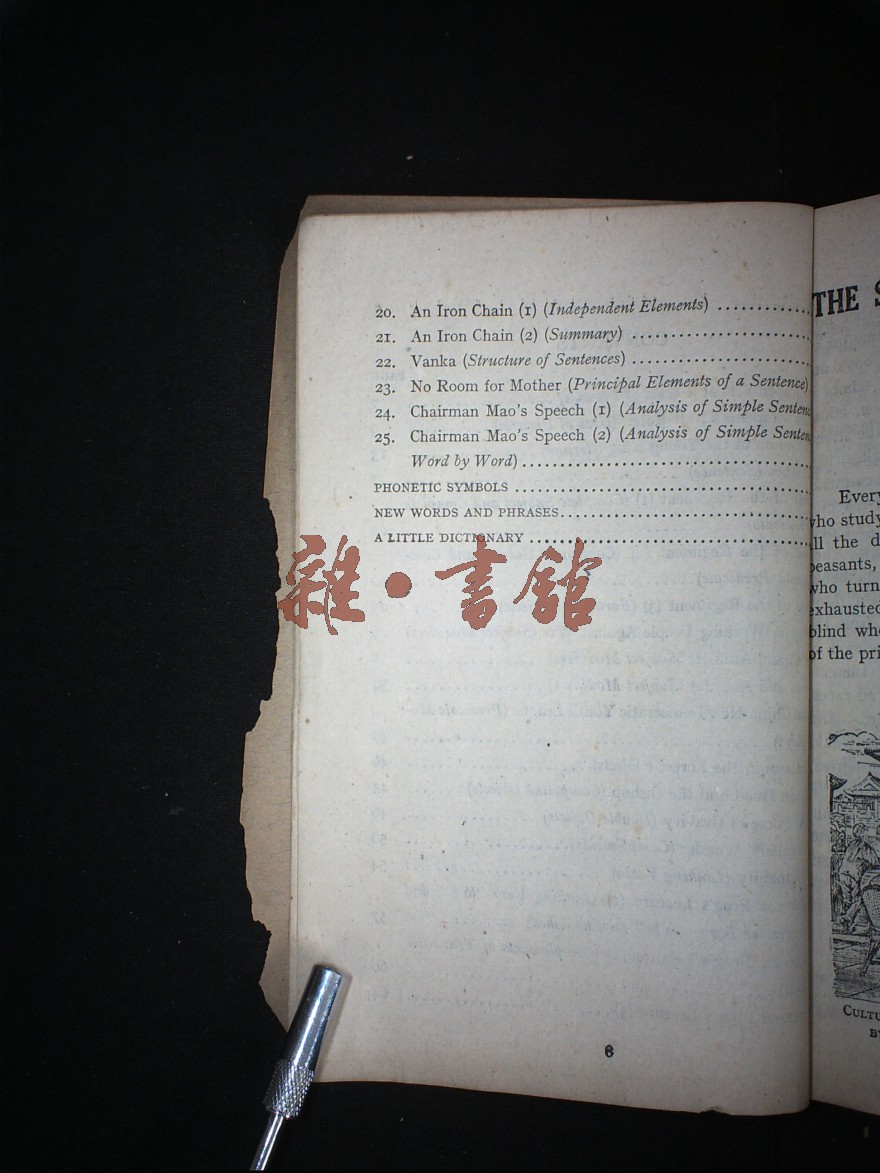 20. An Iron Chain (1) (Independent Elements) ............
21. An Iron Chain (2) (Summary) ......................
22. Vanka (Structure of Sentences) ......................
23. No Room for Mother (Principal Elements of a Sentence)
24. Chairman Mao's Speech (1) (Analysis of Simple
25. Chairman Mao's Speech (2) (Analysis of Simple
Word by Word) ....................................
PHONETIC SYMBOLS ......................................
NEW WORDS AND PHRASES................................
A LITTLE DICTIONARY ....................................
雜·書館
6
THE
Every
who study
all the
peasants,
who turn
exhausted
blind
of the